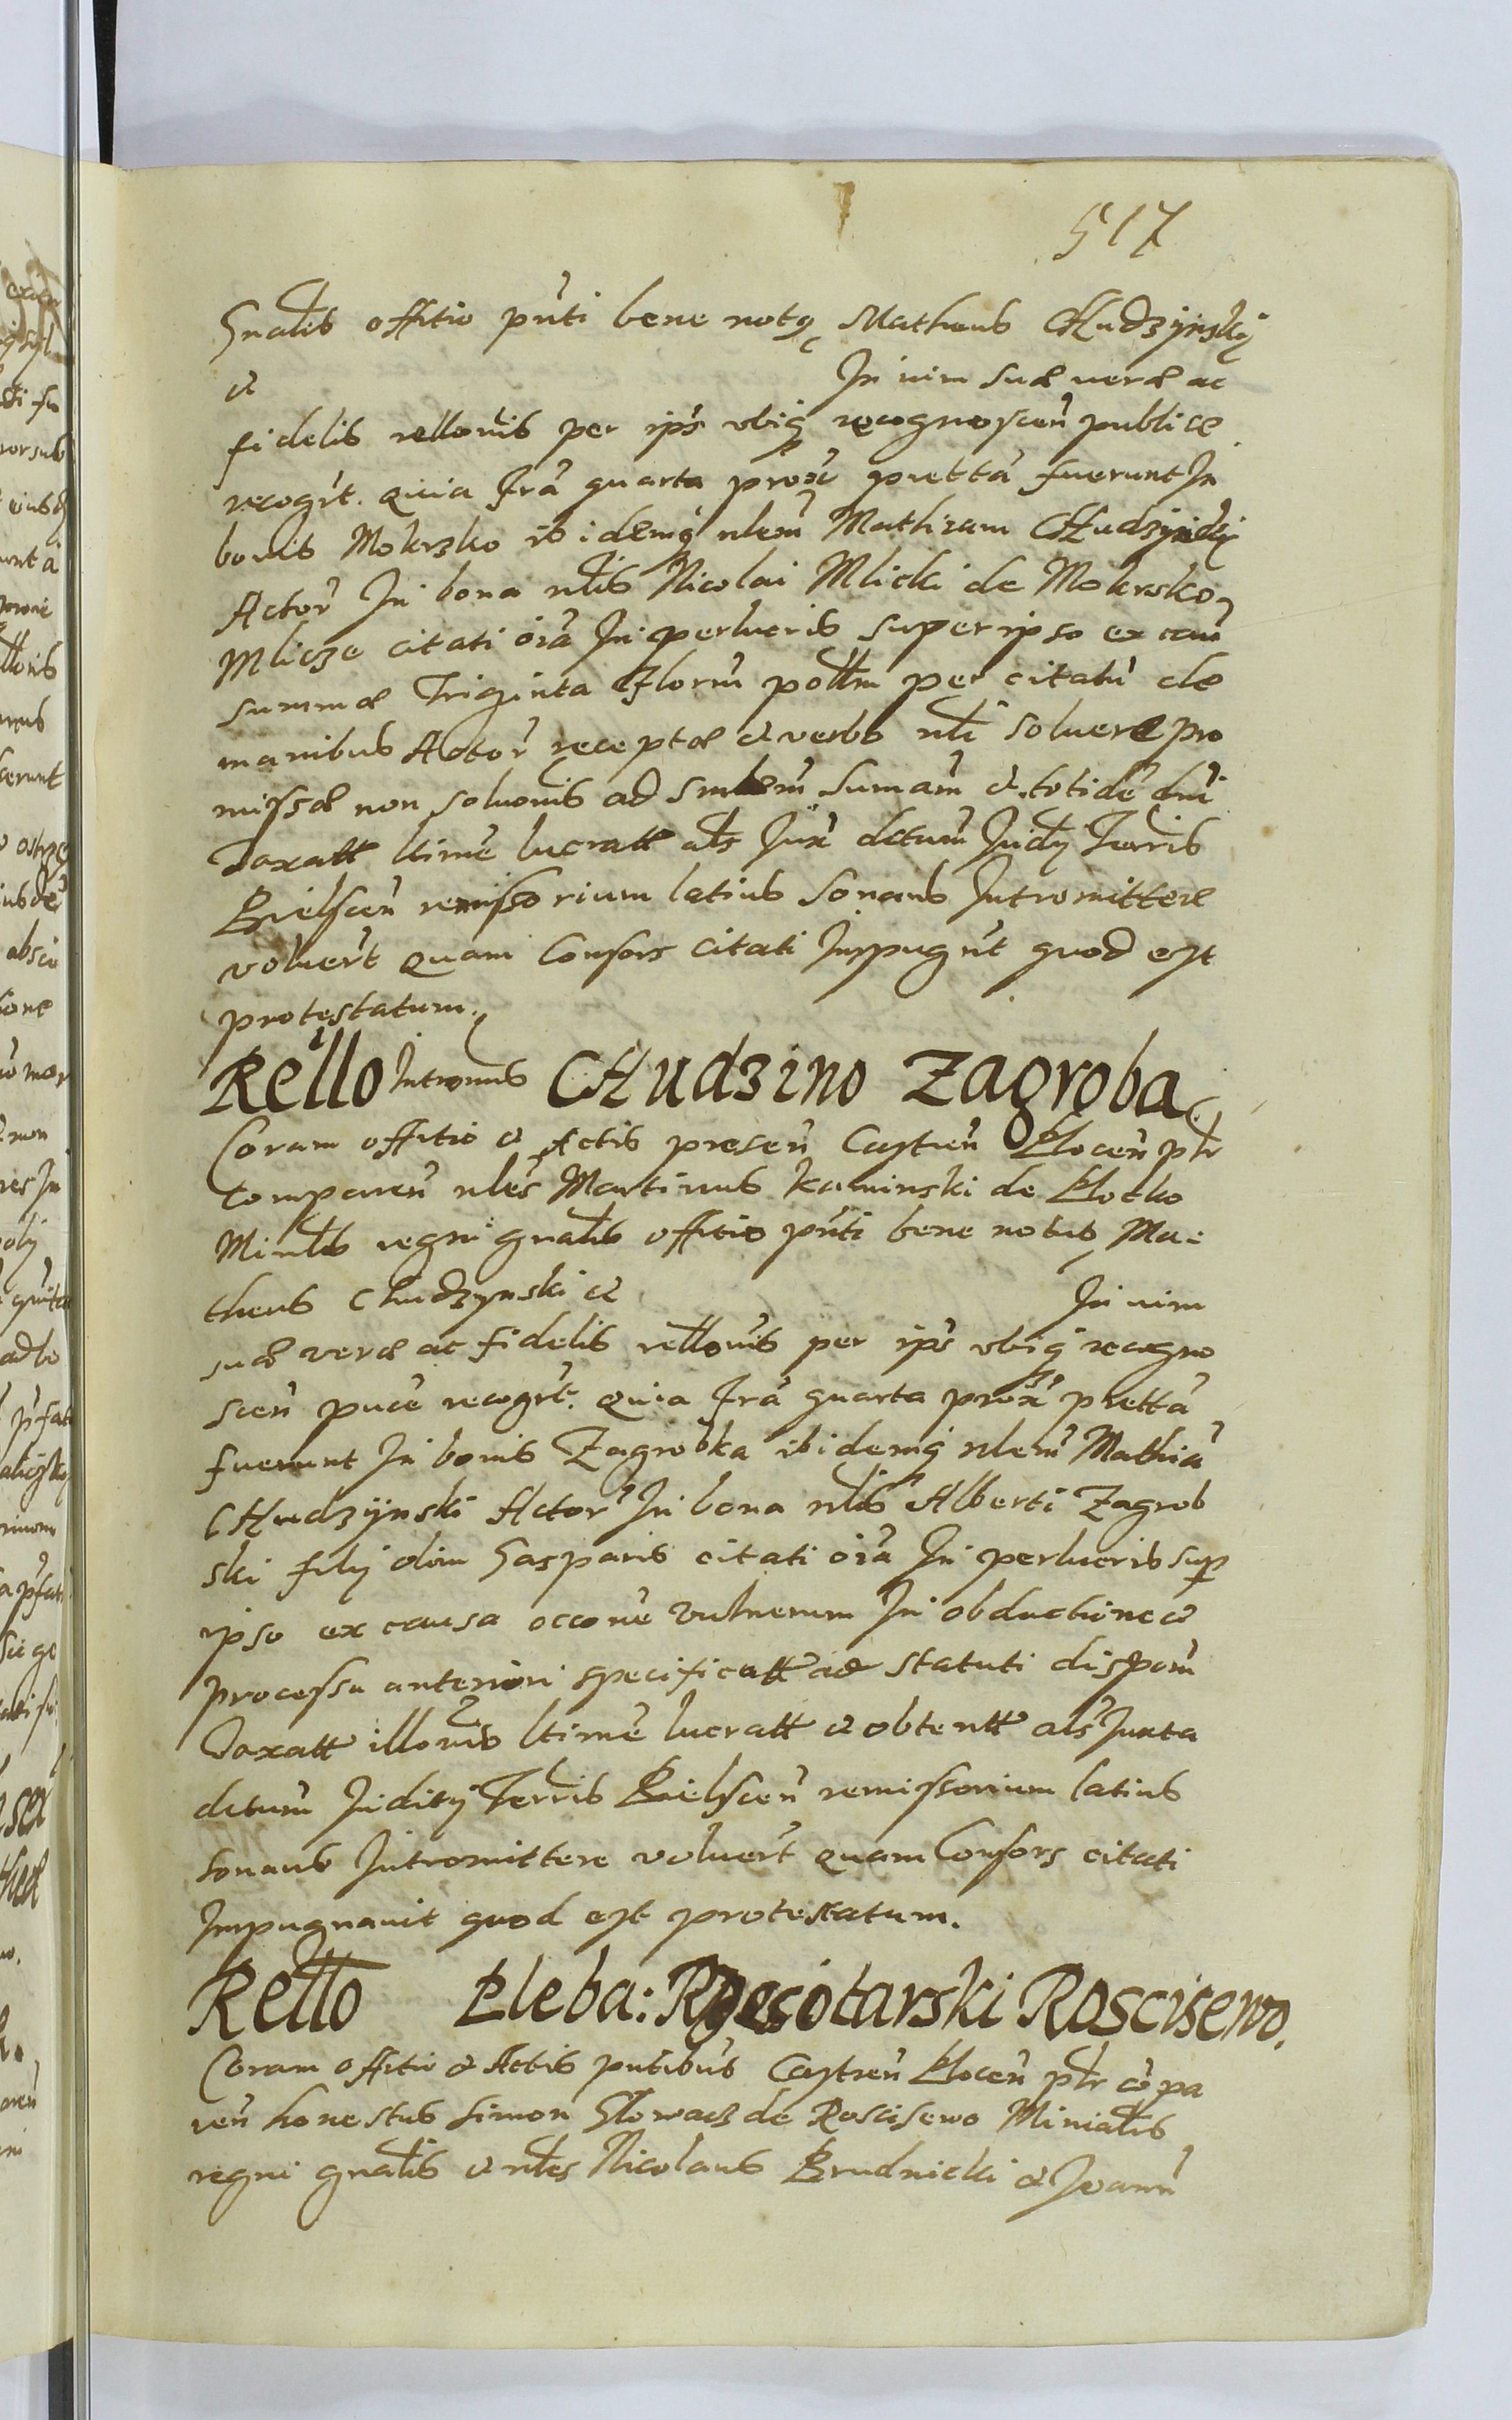 517
Gnalis offitio pnti bene notq Matheus CHudzynskÿ
et In vim suæ veræ ac
fidelis rellonis per ips ubiq recognoscen publice
recogrt. quia fra quarta prox pretta fuerunt In
bonis Mokrzko ibidemq nlem Mathiam CHudzÿnski
Actor In bona nlis Nicolai Mlicki de Mokrsko
Mlicze citati oia In perlucris super ipso ex cau
summæ Triginta Florm polłm per citatu de
manibus Actor receptæ et verbo nli soluere pro
missæ non soluonis ad smlem sumam et totide dni
Taxatt ltime lucratt als Jux dctum Judÿ Terris
Bielscen remissorium latius sonans Intromittere
voluert quam Consors citati Impugnt quod est
protestatum.
Rello Intromis CHudzino Zagroba
Coram offitio et Actis presen Castren Plocen pltr
Comparen nles Martinus Kaminski de Plotko
Minlis regni gnalis offitio pnti bene notus Ma-
theus Chudzynski et In vim
suæ veræ ac fidelis rellonis per ips ubiq recogno
scen puce recogrt. quia fra quarta prox pretta
fuerunt In bonis Zagrobka ibidemq nlem Mathia
CHudzÿnski Actor In bona nlis Alberti Zagrob
ski filÿ olim Gasparis citati oia In perlucris sup
ipso ex causa occone vulnerum In obductione et
processu anteriori specificatt ad statuti dispom
Taxatt illonis ltime lucratt et obtentt als Juxta
dctum Juditÿ Terris Bielscen remissorium latius
sonans Intromittere voluert quam Consors citati
Impugnavit quod est protestatum.
Rello Pleba: Roscisewo.
Coram offitio et Actis pntibus Castren Plocen pltr copa
ren honestus Simon Slowacz de Roscisewo Minialis
regni gnalis et nles Nicolaus Brudnicki et Joann